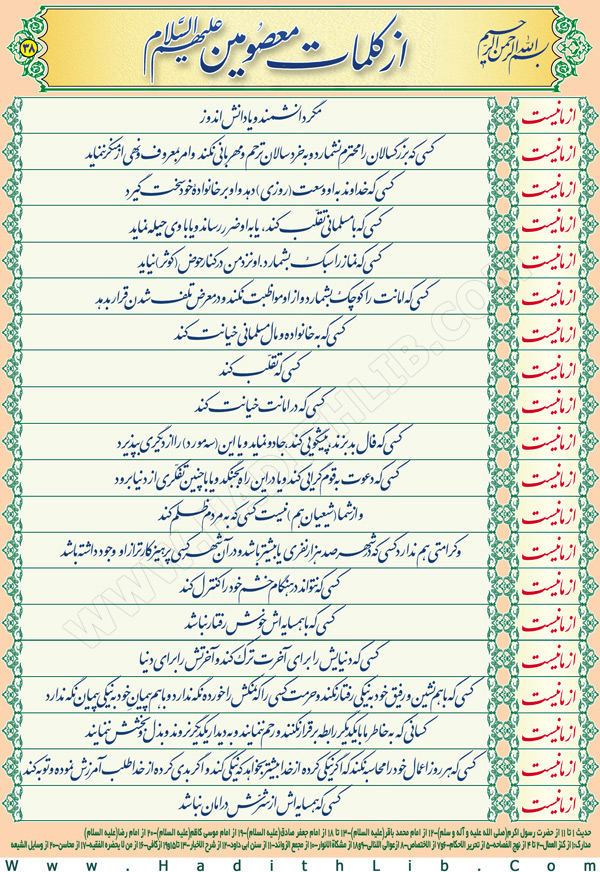 بسم الله الرحمن الرحیم
از کلمات معصومین علیهم السلام
۳۸
از ما نیست مگر دانشمند و یا دانش اندوز
از ما نیست کسی که بزرگسالان را محترم نشمارد و به خردسالان ترحم و مهربانی نکند و امر بمعروف و نهی از منکر ننماید
از ما نیست کسی که خداوند به او وسعت (روزی) دهد و او بر خانواده خود سخت گیرد
از ما نیست کسی که با مسلمانی تقلب کند، یا به او ضرر رساند و یا با وی حیله نماید
از ما نیست کسی که نماز را سبک بشمارد، او نزد من در کنار حوض (کوثر) نیاید
از ما نیست کسی که امانت را کوچک بشمارد و از او مواظبت نکند و در معرض تلف شدن قرار بدهد
از ما نیست کسی که به خانواده و مال مسلمانی خیانت کند
از ما نیست کسی که تقلب کند
از ما نیست کسی که در امانت خیانت کند
از ما نیست کسی که فال بد بزند، پیشگویی کند، جادو نماید و یا این (سه مورد) را از دیگری بپذیرد
از ما نیست کسی که دعوت به قوم گرایی کند و یا در این راه بجنگد و یا با چنین تفکری از دنیا برود
از ما نیست و از شما (شیعیان هم) نیست کسی که به مردم ظلم کند
از ما نیست و کرامتی هم ندارد کسی که در شهر صد هزار نفری یا بیشتر باشد و در آن شهر کسی پرهیزکارتر از او وجود داشته باشد
از ما نیست کسی که نتواند در هنگام خشم خود را کنترل کند
از ما نیست کسی که با همسایه اش خوش رفتار نباشد
از ما نیست کسی که دنیایش را برای آخرت ترک کند و آخرتش را برای دنیا
از ما نیست کسی که با هم نشین و رفیق خود به نیکی رفتار نکند و حرمت کسی را که نمکش را خورده نگه ندارد و با هم پیمان خود به نیکی پیمان نگه ندارد
از ما نیست کسانی که به خاطر ما با یکدیگر رابطه برقرار نکنند و رحم ننمایند و به دیدار یکدیگر نروند و بذل و بخشش ننمایند
از ما نیست کسی که هر روز اعمال خود را محاسبه نکند که اگر نیکی کرده از خدا بیشتر بخواهد که نیکی کند و اگر بدی کرده از خدا طلب آمرزش نموده و توبه کند
از ما نیست کسی که همسایه اش از شرش در امان نباشد
حدیث ۱ تا ۱۱ از حضرت رسول اکرم (صلی الله علیه و آله و سلم)-۱۲ از امام محمد باقر (علیه السلام)-۱۳ تا ۱۸ از امام جعفر صادق (علیه السلام)-۱۹ از امام موسی کاظم (علیه السلام)-۲۰ از امام رضا (علیه السلام)
مدارک: ۱ از کنز العمال-۲ تا ۴ از نهج الفصاحه-۵ از تحریر الاحکام-۶ و ۷ از الاختصاص-۸ از عوالی اللئالی-۹ و ۱۸ از مشکاة الانوار-۱۰ از مجمع الزوائد-۱۱ از سنن ابی داود-۱۲ از شرح الاخبار-۱۳ تا ۱۵ و ۱۹ از کافی-۱۶ از من لا یحضره الفقیه-۱۷ از محاسن-۲۰ از وسایل الشیعه
Www.HadithLib.Com
WWW.HADITHLIB.COM